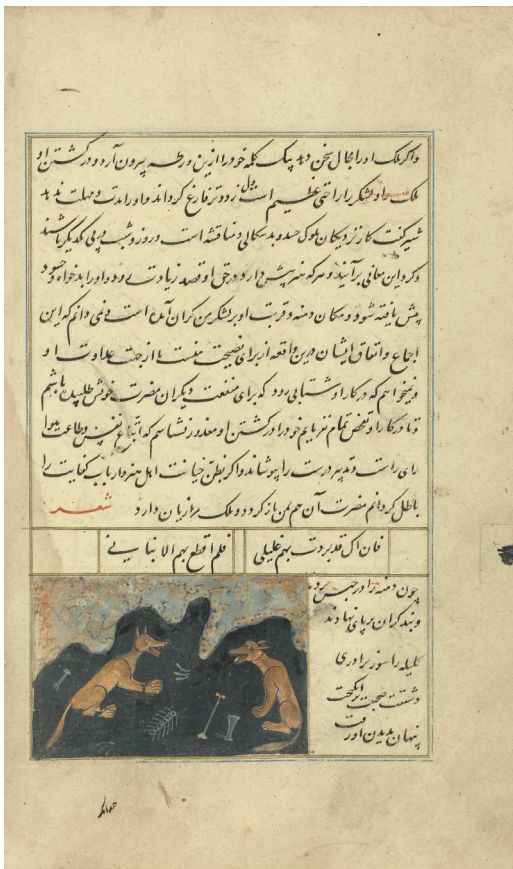 واکر ملک او را مجال سخن دهد بیک کلمه خود را ازین ورطه بیرون آرد و در کشتن او
ملک و لشکر را راحتی عظیم است زودتر فارغ کرداند و او را مدت و مهلت ندهد
شیر کفت کار نزدیکان ملوک حسد و بدسکالی و مناقشه است و روز و شب در پی یکدیکر باشند
و کرد این معانی برآیند و هر که هنر بیش دارد در حق او قصد زیادت رود و او را بدخواه و حسود
بیش یافته شود و مکان دمنه و قربت او بر لشکر من کران آمده است و نمی دانم که این
اجماع و اتفاق ایشان درین واقعه از برای نصیحت منست یا از جهت عداوت او
و نمیخواهم که در کار او شتابی رود که برای منفعت دیکران مضرت خویش طلبیده باشم
و تا در کار او تفحص تمام نفرمایم خود را در کشتن او معذور نشناسم که اتباع نفس و طاعت هوا
رای راست و تدبیر درست را بپوشاند و اکر بظن خیانت اهل هنر و ارباب کفایت را
باطل کردانم مضرت آن هم بمن باز کردد و ملک مرا زیان دارد شعر
فان اک قد بردت بهم غلیلی
فلم اقطع بهم الا بنانی
چون دمنه را در حبس بردند
و بند کران بر پای نهادند
کلیله را سوز برادری
و شفقت صحبت برانکیخت
پنهان بدیدن او رفت